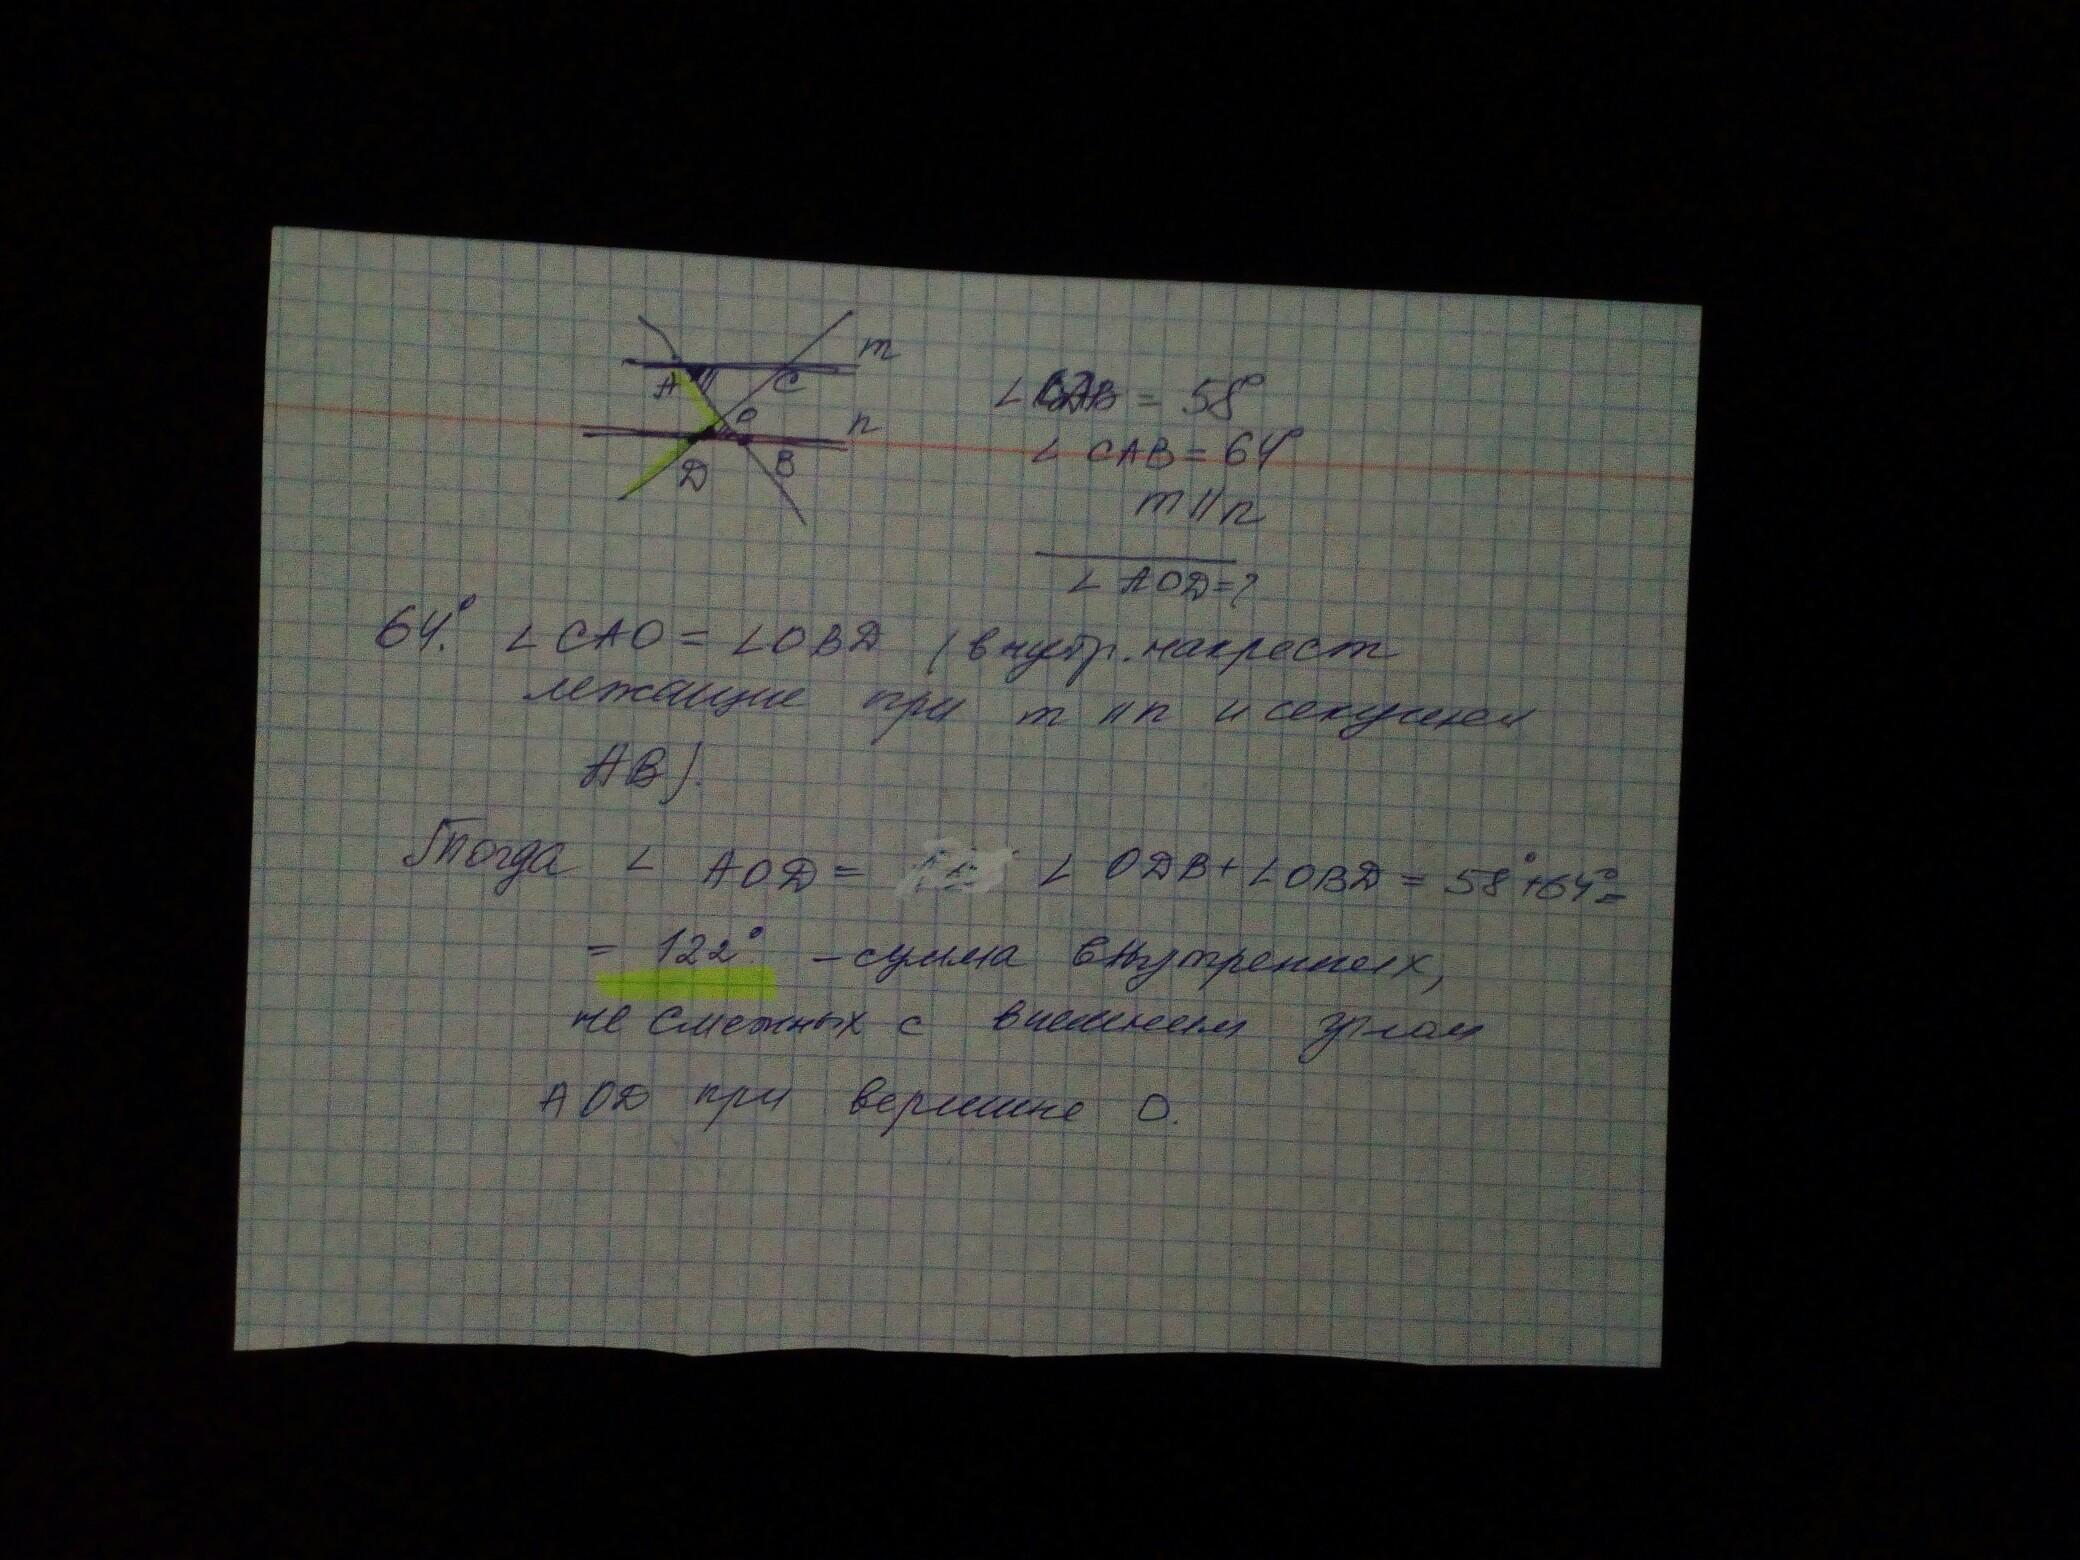 m
A C
O n
D B
∠ = 58°
∠ CAB = 64°
m || n
∠ AOD = ?
64°. ∠ CAO = ∠ OBD (внутр. накрест
лежащие при m || n и секущей
AB).
Тогда ∠ AOD = ∠ ODB + ∠ OBD = 58° + 64° =
= 122°. – сумма внутренних,
не смежных с внешним углом
AOD при вершине O.